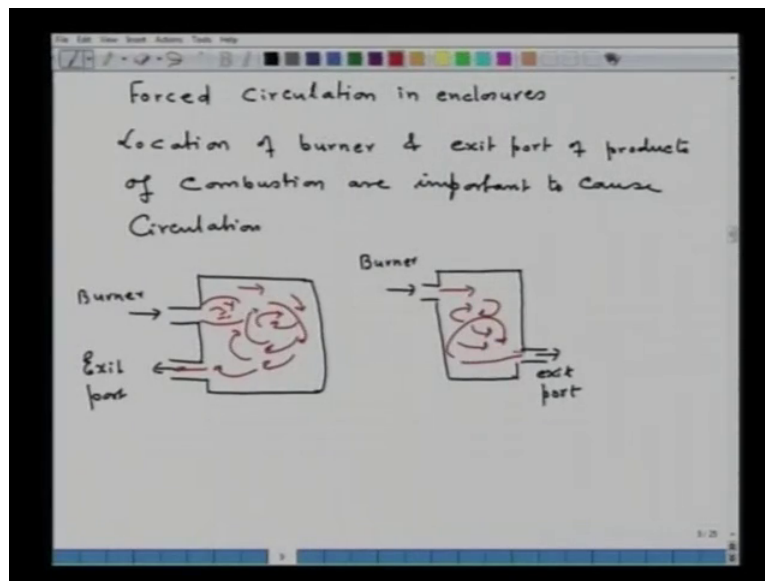 File Edit View Insert Actions Tools Help
Forced Circulation in enclosures
Location of burner & exit port of products
of Combustion are important to cause
Circulation
Burner
Exit
port
Burner
exit
port
9